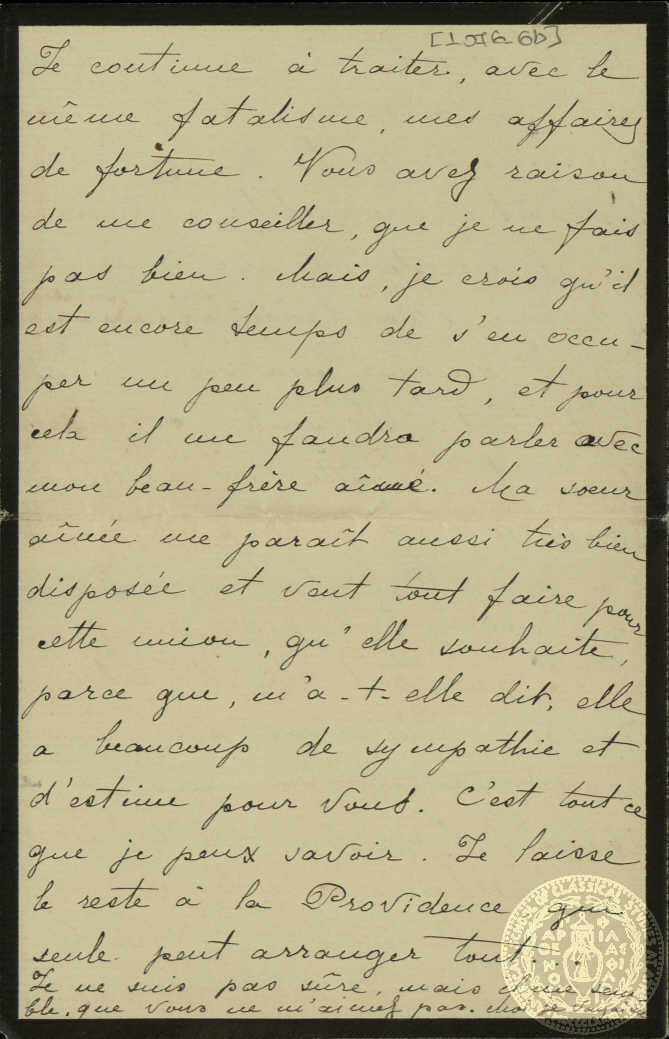 Je continue à traiter, avec le
même fatalisme, mes affaires
de fortune. Vous avez raison
de me conseiller, que je ne fais
pas bien. Mais, je crois qu'il
est encore temps de s'en occu-
per un peu plus tard, et pour
cela il me faudra parler avec
mon beau-frère aîné. Ma soeur
aînée me paraît aussi très bien
disposée et veut tout faire pour
cette union, qu'elle souhaite,
parce que, m'a-t-elle dit, elle
a beaucoup de sympathie et
d'estime pour vous. C'est tout ce
que je peux savoir. Je laisse
le reste à la Providence qui
seule peut arranger tout...
Je ne suis pas sûre, mais il me sem
ble, que vous ne m'aimez pas.